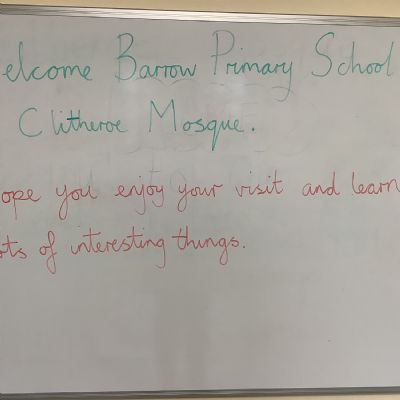 elcome Barrow Primary School
Clitheroe Mosque.
ope you enjoy your visit and learn
ots of interesting things.